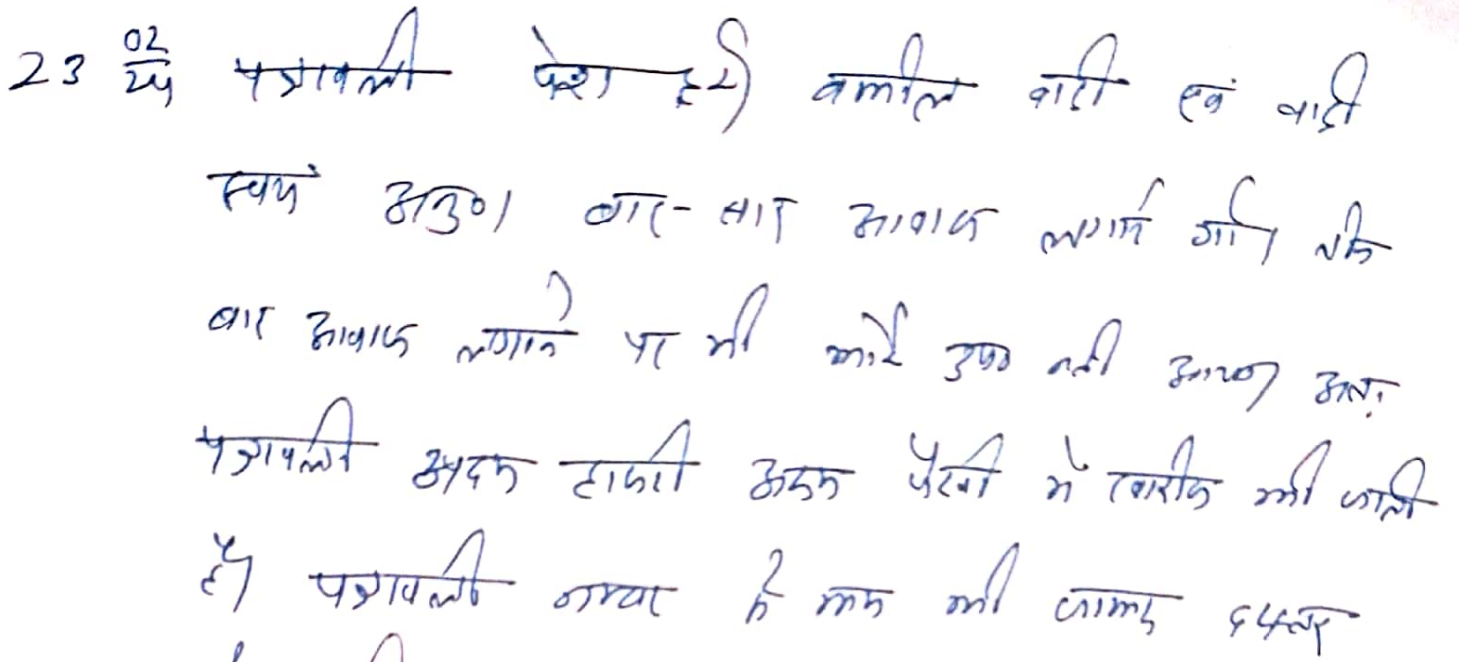 23 02/24 पत्रावली पेश हुई। वकील वादी एवं वादी
स्वयं अनु०। बार-बार आवाज लगाई गई। अनेक
बार आवाज लगाने पर भी कोई उप० नही आया। अतः
पत्रावली अदम हाजरी अदम पैरवी में खारीज की जाती
है। पत्रावली नम्बर से कम की जाकर दफ्तर